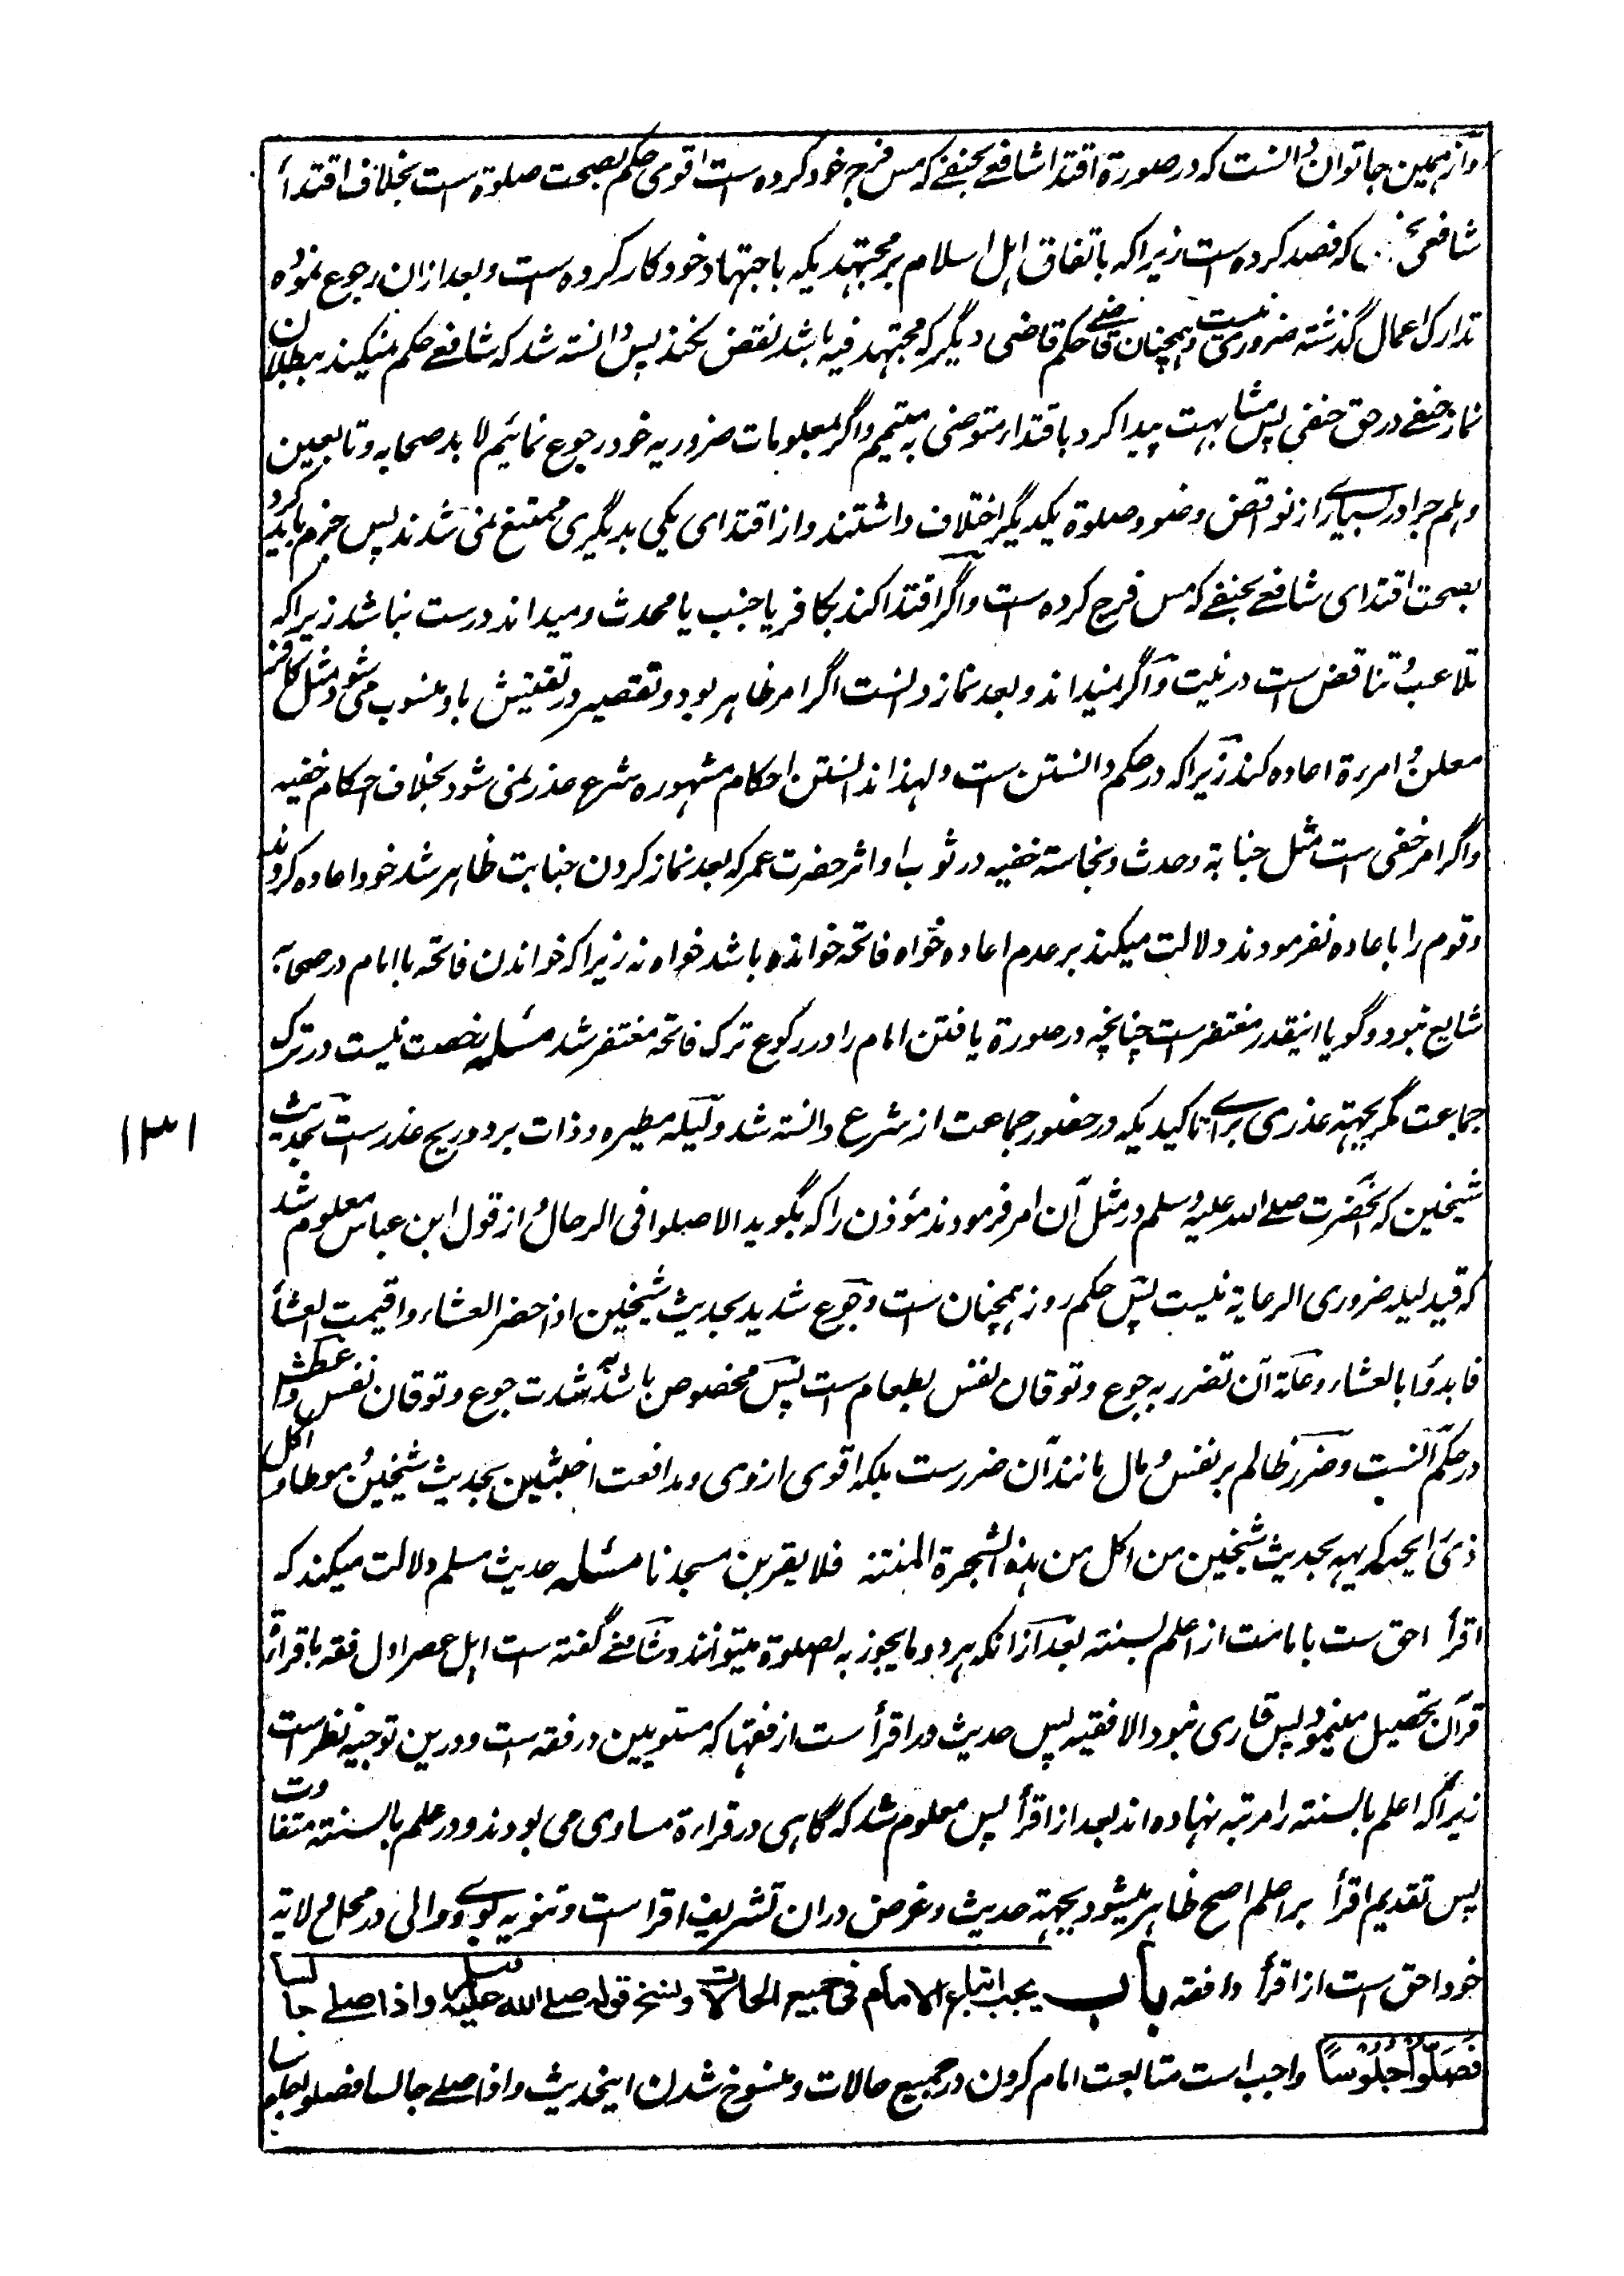 وازہمین جا توان دانست کہ در صورۃ اقتدا شافعے بحنفے کہ مس فرج خود کردہ ست اقوی حکم بصحت صلوۃ ست بخلاف اقتدأ
شافعی کہ فصد کردہ ست زیراکہ باتفاق اہل اسلام بر مجتہدیکہ باجتہاد خود کار کردہ ست و بعد ازان رجوع نمودہ
تدارک اعمال گذشتہ ضروری نیست وہمچنان قاضے حکم قاضی دیگر کہ مجتہد فیہ باشد نقض نکند پس دانستہ شد کہ شافعے حکم نمیکند ببطلان
نماز حنفے در حق حنفی پس مشابہت پیدا کرد باقتداء متوضی بہ متیمم واگر بمعلومات ضروریہ خود رجوع نمائیم لا بد صحابہ و تابعین
وہلم جرا در بسیارے از نواقض وضو و صلوۃ یکدیگر اختلاف داشتند و از اقتدای یکی بدیگری ممتنع نمی شدند پس جزم باید کرد
بصحت اقتدای شافعے بحنفے کہ مس فرج کردہ ست واگر اقتدا کند بکافر یا جنب یا محدث و میداند درست نباشد زیراکہ
تلاعب و تناقض ست در نیت واگر نمیداند و بعد نماز دانست اگر امر ظاہر بود و تقصیر در تفتیش باو منسوب می شود مثل کافر
معلن و امرءۃ اعادہ کند زیراکہ در حکم دانستن ست ولہذا ندانستن احکام مشہورہ شرع عذر نمی شود بخلاف احکام خفیہ
واگر امر خفی ست مثل جنابۃ و حدث و نجاستہ خفیہ در ثوب او اثر حضرت عمر کہ بعد نماز کردن جنابت ظاہر شد خود اعادہ کردند
و قوم را باعادہ نفرمودند دلالت میکند بر عدم اعادہ خواہ فاتحہ خواندہ باشد خواہ نہ زیراکہ خواندن فاتحہ با امام در صحابہ
شایع نبود و گویا اینقدر مغتفر ست چنانچہ در صورۃ یافتن امام را در رکوع ترک فاتحہ مغتفر شد مسئلہ رخصت نیست در ترک
جماعت مگر بجہتہ عذری برای تاکیدیکہ در حضور جماعت از شرع دانستہ شد ولیلہ مطیرہ و ذات برد و ریح عذر ست بحدیث
شیخین کہ آنحضرت صلے اللہ علیہ وسلم در مثل آن امر فرمودند مؤذن را کہ بگوید الا صلوا فی الرحال و از قول ابن عباس معلوم شد
کہ قید لیلہ ضروری الرعایۃ نیست پس حکم روز ہمچنان ست و جوع شدید بحدیث شیخین اذا حضر العشاء و اقیمت العشأ
فابدؤا بالعشاء و علۃ آن تضرر بہ جوع و توقان نفس بطعام ست پس مخصوص باشد بہ شدت جوع و توقان نفس و عطش
در حکم آنست و ضرر ظالم بر نفس و مال مانند آن ضررست بلکہ اقوی از وی و مدافعت اخبثین بحدیث شیخین و موطا و اکل
ذی رایحہ کریہہ بحدیث شیخین من اکل من ہذہ الشجرۃ المنتنہ فلا یقربن مسجدنا مسئلہ حدیث مسلم دلالت میکند کہ
اقرأ احق ست بامامت از اعلم بسنتہ بعد ازانکہ ہر دو ما یجوز بہ الصلوۃ میتوانند و شافعے گفتہ ست اہل عصر اول فقہ با قرأۃ
قرآن تحصیل مینمود پس قاری نبود الا فقیہ پس حدیث در اقرأ ست از فقہا کہ مستویین در فقہ ست و درین توجیہ نظر است
زیراکہ اعلم بالسنتہ را مرتبہ نہادہ اند بعد از اقرأ پس معلوم شد کہ گاہی در قراءۃ مساوی می بودند و در علم بالسنتہ متفاوت
پس تقدیم اقرأ بر اعلم اصح ظاہر میشود بجہتہ حدیث و غرض دران تشریف اقرا ست و تنویہ بوے و والی در محل ولایۃ
خود احق ست از اقرأ و افقہ باب یجب اتباع الامام فی جمیع الحالات و نسخ قولہ صلے اللہ علیہ وسلم واذا صلے جالسا
فَصَلُّوا جُلُوْسًا واجب است متابعت امام کردن در جمیع حالات و منسوخ شدن این حدیث واذا صلے جالسا فصلوا جلوسا
۱۳۱